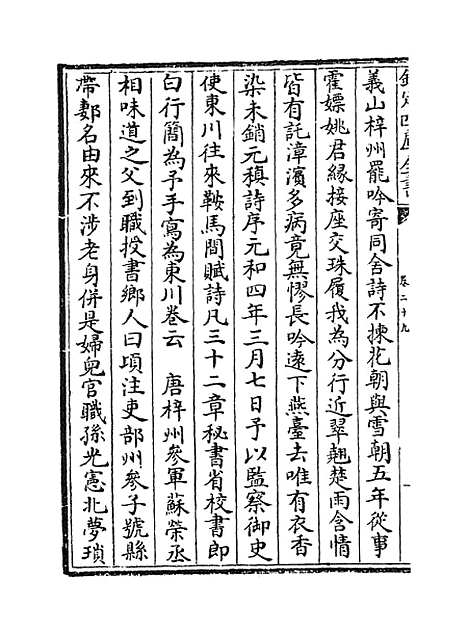 欽定四庫全書
卷二十九
義山梓州罷吟寄同舍詩不揀花朝與雪朝五年從事
霍嫖姚君緣接座交珠履我為分行近翠翹楚雨含情
皆有託漳濱多病竟無憀長吟遠下燕臺去唯有衣香
染未銷元稹詩序元和四年三月七日予以監察御史
使東川往來鞍馬間賦詩凡三十二章秘書省校書郎
白行簡為予手寫為東川卷云　唐梓州參軍蘇榮丞
相味道之父到職投書鄉人曰項注吏部州參子號縣
帶鄭名由來不涉老身併是婦兒官職孫光憲北夢瑣